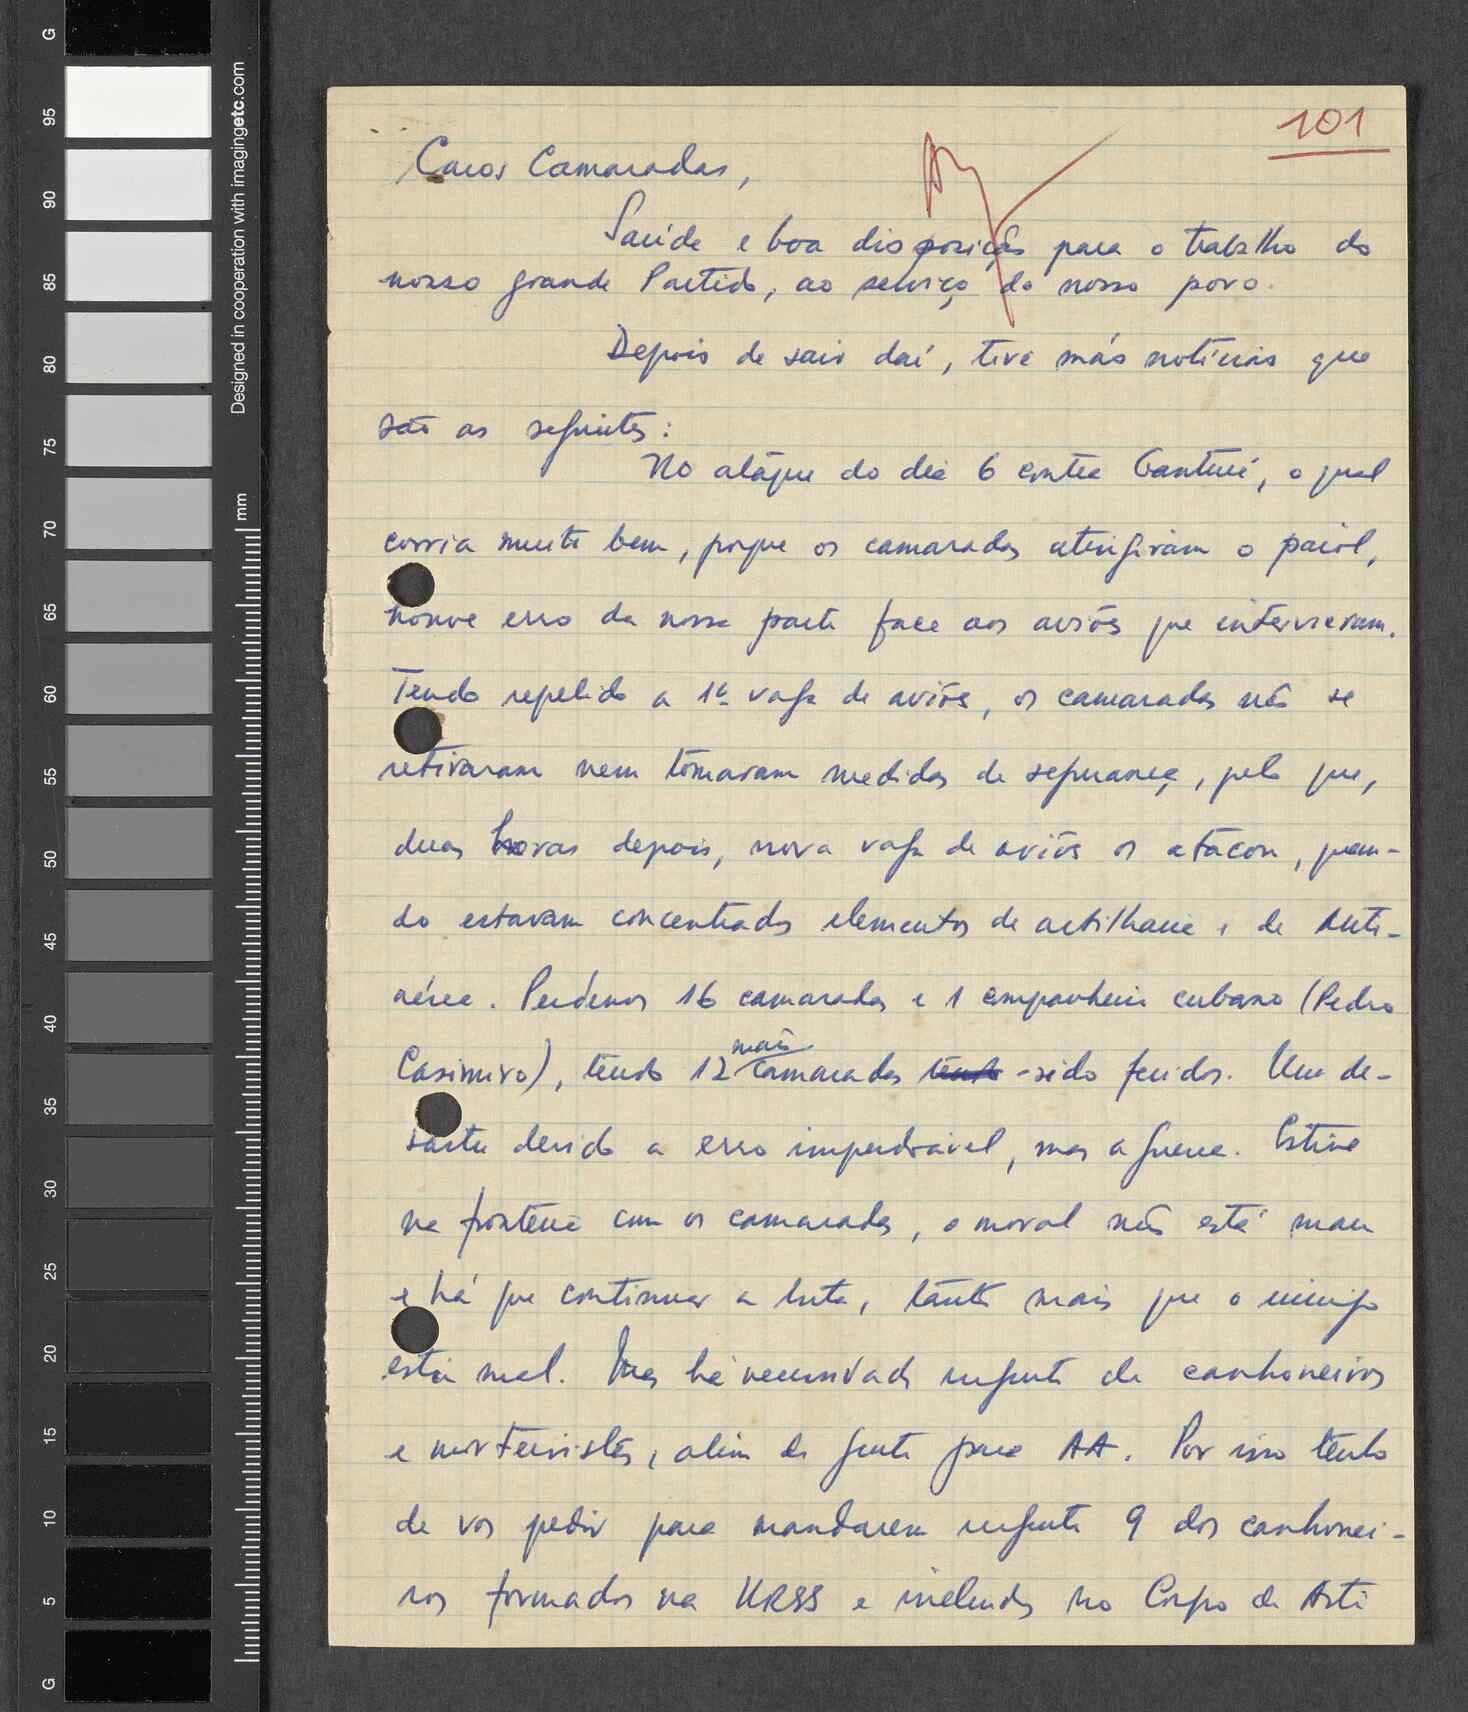 101
Caros Camaradas,
Saúde e boa disposição para o trabalho do
nosso grande Partido, ao serviço do nosso povo.
Depois de sair daí, tive más notícias que
são as seguintes:
No ataque do dia 6 contra Canturé, o qual
corria muito bem, porque os camaradas atingiram o paiol,
houve erro da nossa parte face aos aviões que intervieram.
Tendo repelido a 1ª vaga de aviões, os camaradas não se
retiraram nem tomaram medidas de segurança, pelo que,
duas horas depois, nova vaga de aviões os atacou, quan-
do estavam concentrados elementos de artilharia e de Anti-
aérea. Perdemos 16 camaradas e 1 companheiro cubano (Pedro
Casimiro), tendo 12 mais camaradas sido feridos. Um de-
sastre devido a erro imperdoável, mas a guerra. Estive
na fronteira com os camaradas, o moral não está mau
e há que continuar a luta, tanto mais que o inimigo
está mal. Mas há necessidade urgente de canhoneiros
e morteiristas, além de gente para AA. Por isso tenho
de vos pedir para mandarem urgente 9 dos canhonei-
ros formados na URSS e incluidos no Corpo de Arti
G
95
90
85
80
75
70
65
60
55
50
45
40
35
30
25
20
15
10
5
G
Designed in cooperation with imagingetc.com
mm